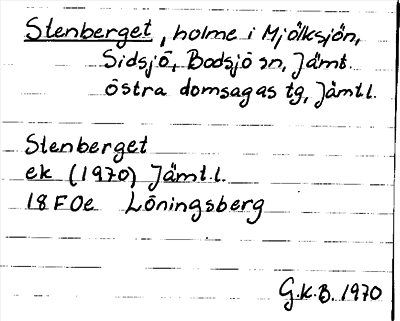 Stenberget, holme i Mjölksjön,
Sidsjö, Bodsjö sn, Jämt.
Östra domsagas tg, Jämt.l.
Stenberget
ek (1970) Jämt.l.
18F0e Löningsberg
G.K.B. 1970